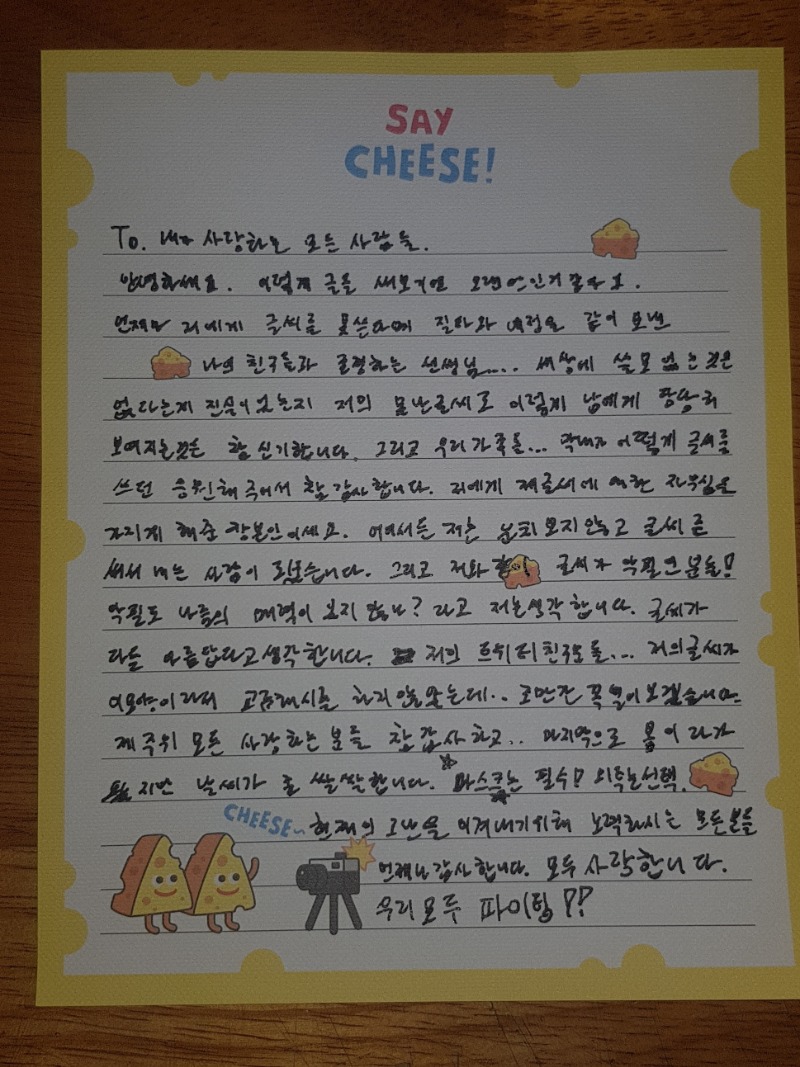 SAY
CHEESE!
To. 내가 사랑하는 모든 사람들.
안녕하세요. 이렇게 글을 써보기엔 오랜만인거 같아요.
언제나 저에게 글씨를 못쓴다며 질타와 격려을 같이 보낸
나의 친구들과 존경하는 선생님.... 세상에 쓸모 없는것은
없다는게 진실이었는지 저의 못난글씨로 이렇게 남에게 당당히
보여지는것은 참 신기합니다. 그리고 우리가족들... 막내가 어떻게 글씨를
쓰던 응원해 주어서 참 감사합니다. 저에게 제글씨에 대한 자부심을
가지게 해준 장본인이세요. 어디서든 저는 눈치 보지 않고 글씨를
써서 내는 사람이 되었습니다. 그리고 저와 글씨가 악필인 분들!
악필도 나름의 매력이 보지 않나? 라고 저는생각 합니다. 글씨가
다들 아름답다고 생각합니다. 저의 트위터친구들... 저의글씨가
이모양이라서 교류해시를 하지 않았는데.. 조만간 꼭 열어보겠습니다.
제 주위 모든 사랑하는 분들 참 감사하고.. 마지막으로 봄이라
지만 날씨가 좀 쌀쌀합니다. 마스크는 필수! 외출은선택.
CHEESE~
현재의 고난을 이겨내기위해 노력하시는 모든분들
언제나 감사합니다. 모두 사랑합니다.
우리 모두 파이팅!?